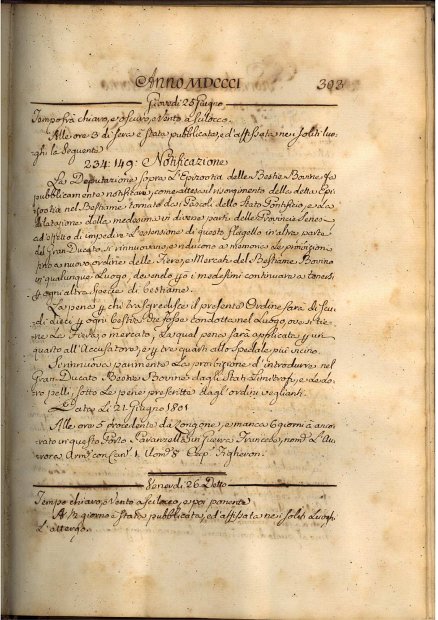 ANNO MDCCCI 393
Giovedi 25 Giugno
Tempo frà chiaro, e oscuro, e Vento a Scilocco.
Alle ore 3 di sera è stata pubblicata, ed affissata nei soliti luo-
ghi la Seguente
234: 149: Notificazione
La Deputazione sopra L'Epizootia delle Bestie Bovine fa
pubblicamente notificare, come atteso il risorgimento della detta Epi-
zootia nel Bestiame tornato dai Pascoli dello Stato Pontificio, e la
dilatazione della medesima in diverse parti della Provincia Senese
ad effetto di impedire L'estensione di questo flagello in altre parti
del Gran Ducato, si rinnovano, e riducono a memoria Le proibizioni
fino a nuovo ordine delle Fiere, e Mercati del Bestiame Bovino
in qualunque Luogo, dovendo però i medesimi continuare a tenersi
ogni altra specie di bestiame.
La pena chi trasgredisce il presente Ordine sarà di Scu-
di dieci ogni bestia che fosse condotta nel Luogo, ove si tie-
ne La Fiera, o mercato, La qual pena sarà applicata un
quarto all'Accusatore, e tre quarti allo Spedale più vicino.
Si rinnova parimente La proibizione d'introdurre nel
Gran Ducato Bestie Bovine dagli Stati Limitrofi, e le lo-
ro pelli, sotto Le pene prescritte dagl'ordini veglianti.
Data Li 21 Giugno 1801
Alle ore è procedente da Longone, e manca 6 giorni è ancor-
rato in questo Porto francese, nom.
Venerdi 26 Detto
Tempo chiaro, e Vento a Scilocco, e poi ponente
A giorno è stata pubblicata, ed affissata nei soliti Luoghi
L'attergo.